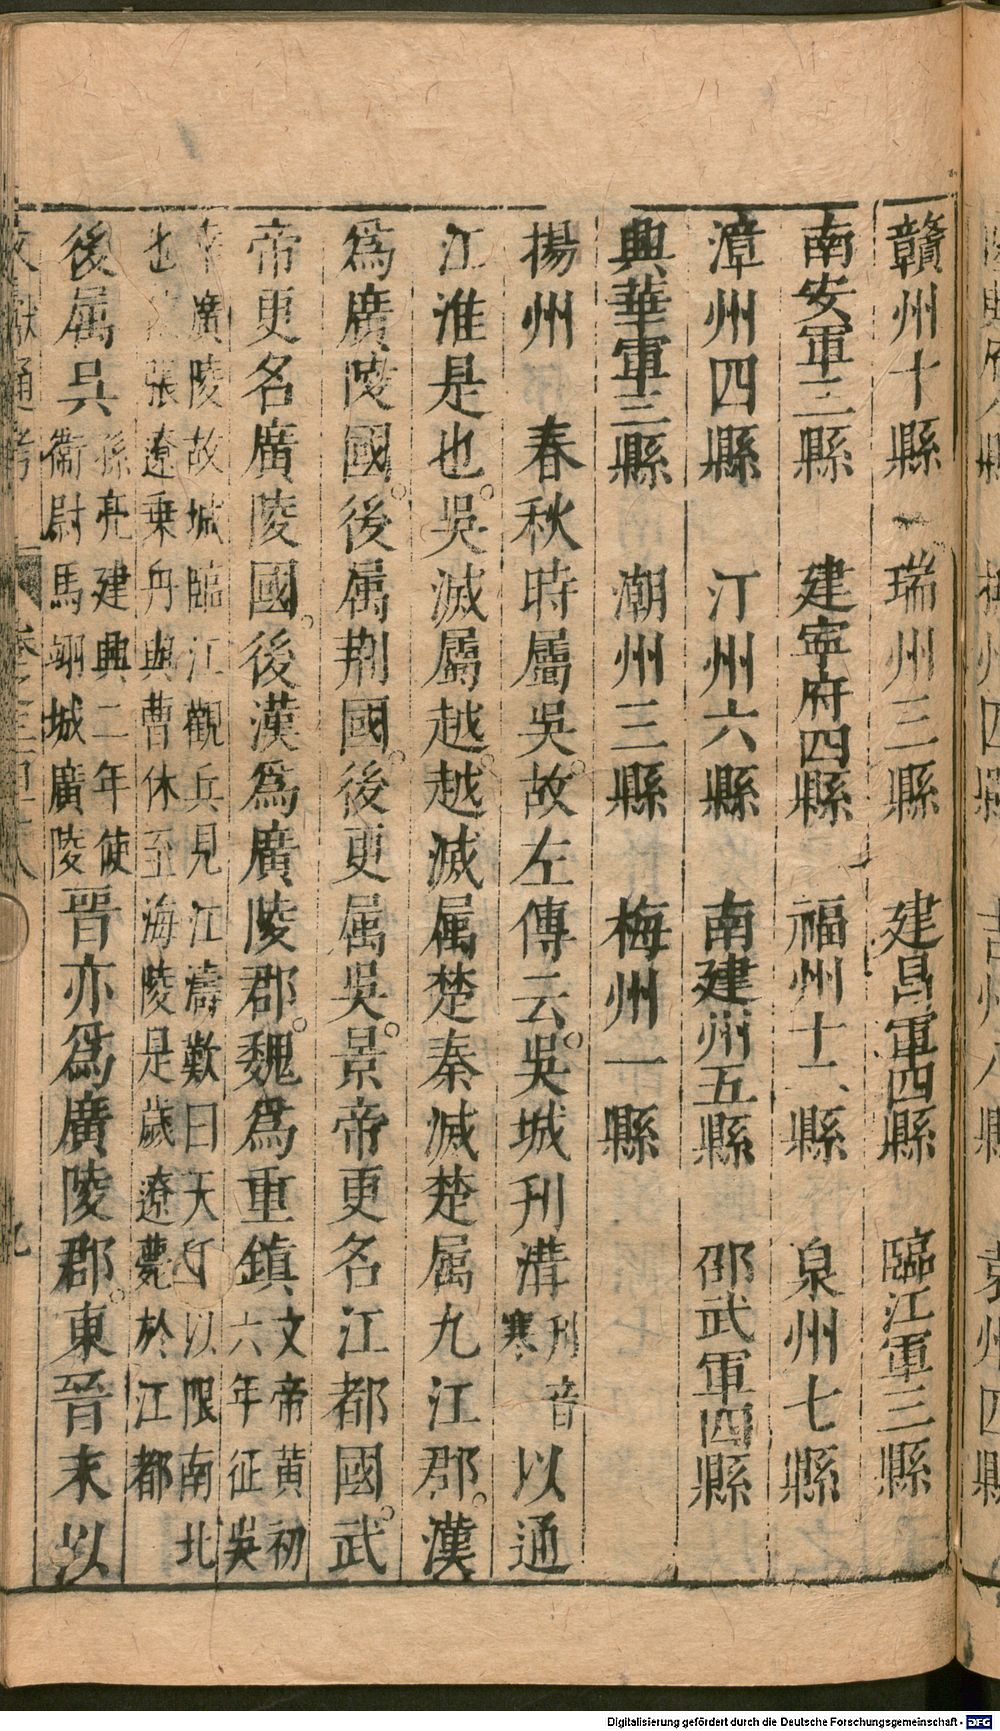 贛州十縣 瑞州三縣 建昌軍四縣 臨江軍三縣
南安軍三縣 建寧府四縣 福州十二縣 泉州七縣
漳州四縣 汀州六縣 南建州五縣 邵武軍四縣
興華軍三縣 潮州三縣 梅州一縣
揚州 春秋時屬吳故左傳云吳城刋溝刋音寒以通
江淮是也吳滅屬越越滅属楚秦滅楚属九江郡漢
為廣陵國後属荆國後更属吳景帝更名江都國武
帝更名廣陵國後漢為廣陵郡魏為重鎮文帝黄初六年征吳
幸廣陵故城臨江觀兵見江濤歎曰天所以限南北
也 張遼乗舟與曹休至海陵是歲遼薨於江都
後属呉孫亮建興二年使衞尉馬城廣陵晉亦為廣陵郡東晉末以
文獻通考 卷之三百十八 九
Digitalisierung gefördert durch die Deutsche Forschungsgemeinschaft - DFG